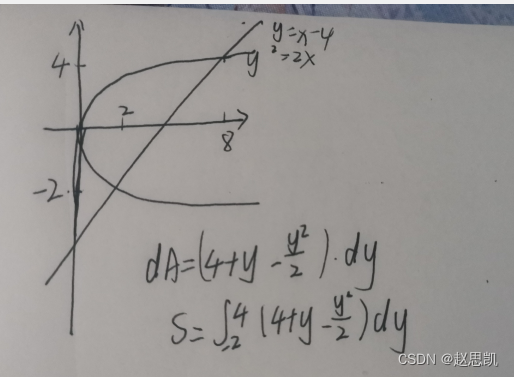 y=x-4
y²=2x
4
2
8
-2
dA=(4+y-y²/2)·dy
S=∫₋₂⁴(4+y-y²/2)dy
CSDN @赵思凯